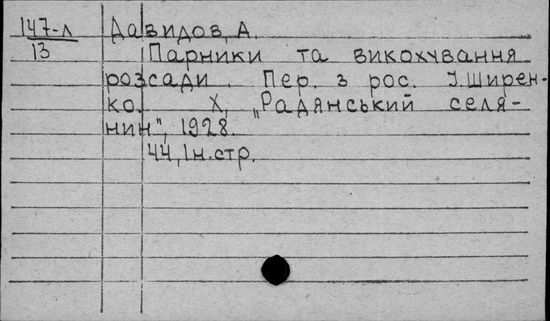 147-л
13
Давидов, А.
Парники та викохування
розсади. Пер. з рос. І. Ширен-
ко. Х, "Радянський селя-
нин", 1928.
44, 1 н. стр.